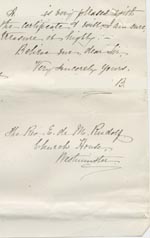 A is very pleased with
the certificate & will I am sure
treasure it highly.
Believe me dear Sir
Very sincerely yours.
B.
The Rev. E. de M. Rudolf
Church House,
Westminster